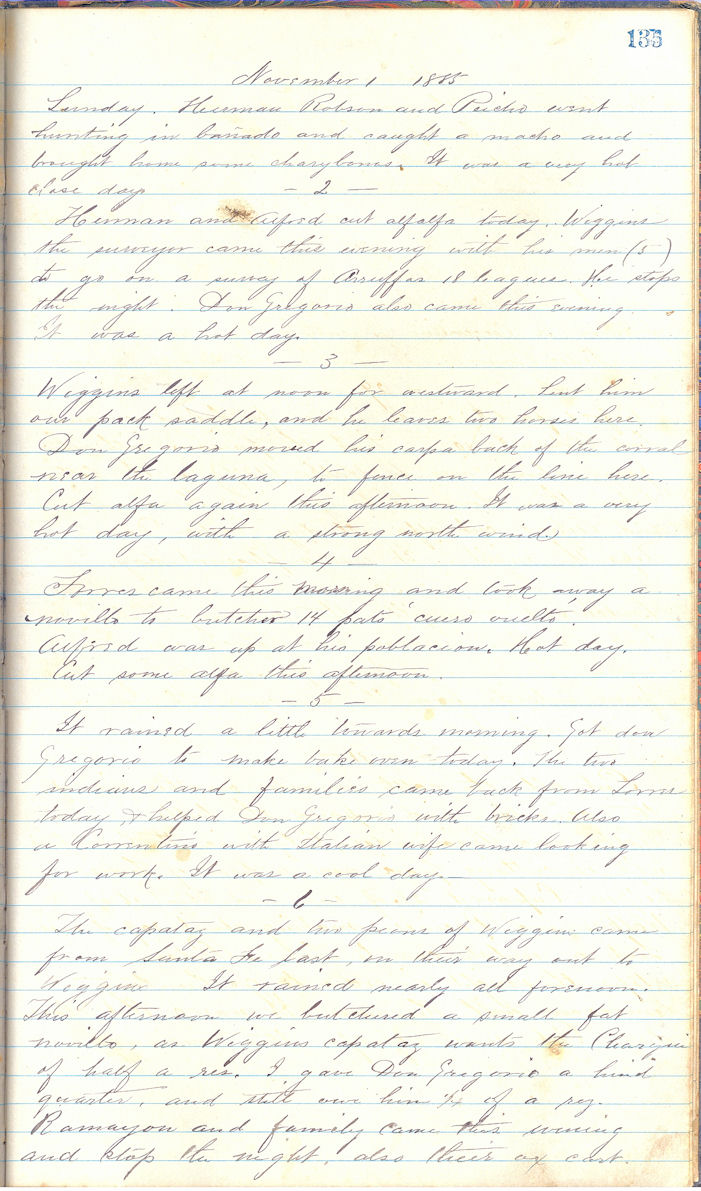 135
November 1 1885
Sunday. Herman Robson and Pucho went
hunting in bañado and caught a macho and
brought home some charybones. It was a very hot
close day
— 2 —
Herman and Alfred cut alfalfa today. Wiggins
the surveyor came this evening with his men (5)
to go on a survey of Arruffos 18 leagues. He stops
the night. Don Gregorio also came this evening
It was a hot day.
— 3 —
Wiggins left at noon for westward. Lent him
our pack saddle, and he leaves two horses here.
Don Gregorio moved his carpa back of the corral
near the laguna, to fence on the line here.
Cut alfa again this afternoon. It was a very
hot day, with a strong north wind.
— 4 —
Torres came this morning and took away a
novillo to butcher 14 pats cuero vuelto.
Alfred was up at his poblacion. Hot day.
Cut some alfa this afternoon.
— 5 —
It rained a little towards morning. Got don
Gregorio to make bake oven today. The two
indians and families came back from Torres
today & helped Don Gregorio with bricks. Also
a Correntino with Italian wife came looking
for work. It was a cool day.—
— 6 —
The capataz and two peons of Wiggins came
from Santa Fe last, on their way out to
Wiggins It rained nearly all forenoon.
This afternoon we butchered a small fat
novillo, as Wiggins capataz wants the Charqui
of half a res. I gave Don Gregorio a hind
quarter, and still owe him 1/4 of a rez.
Ramayon and family came this evening
and stop the night, also their ox cart.